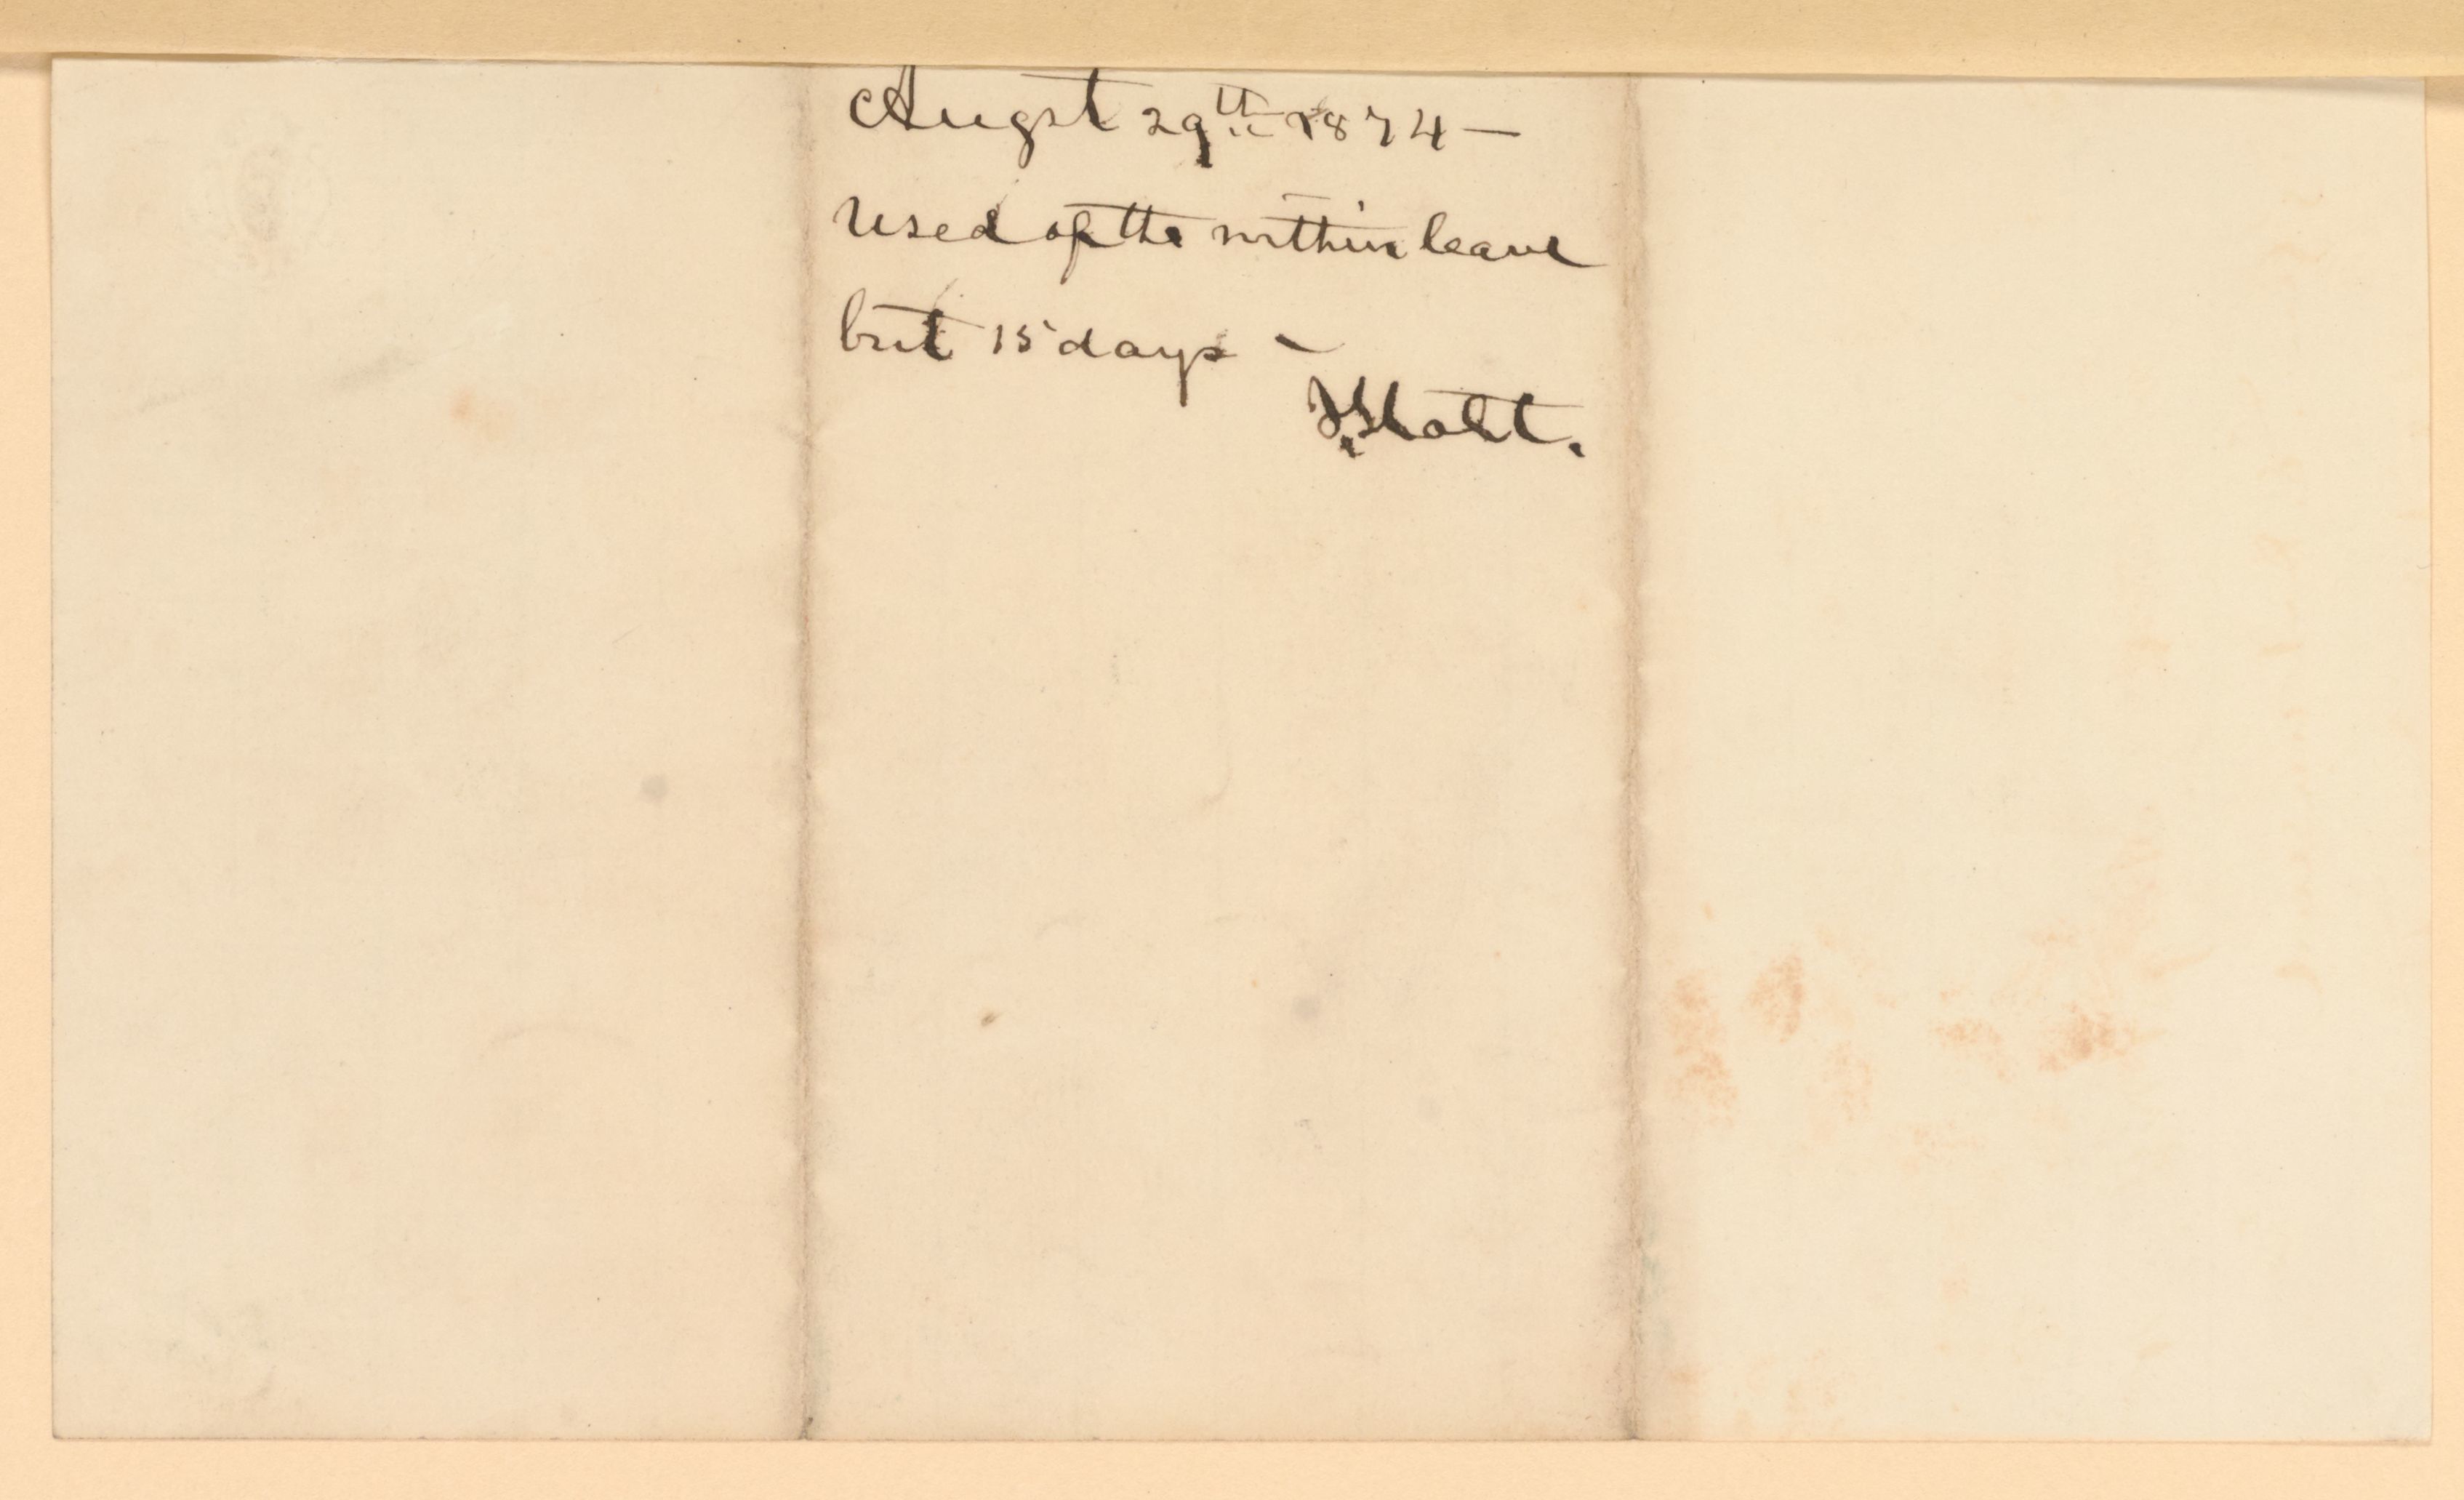 Augst 29th 1874 —
Used of the within leave
but 15 days –
J. Holt.